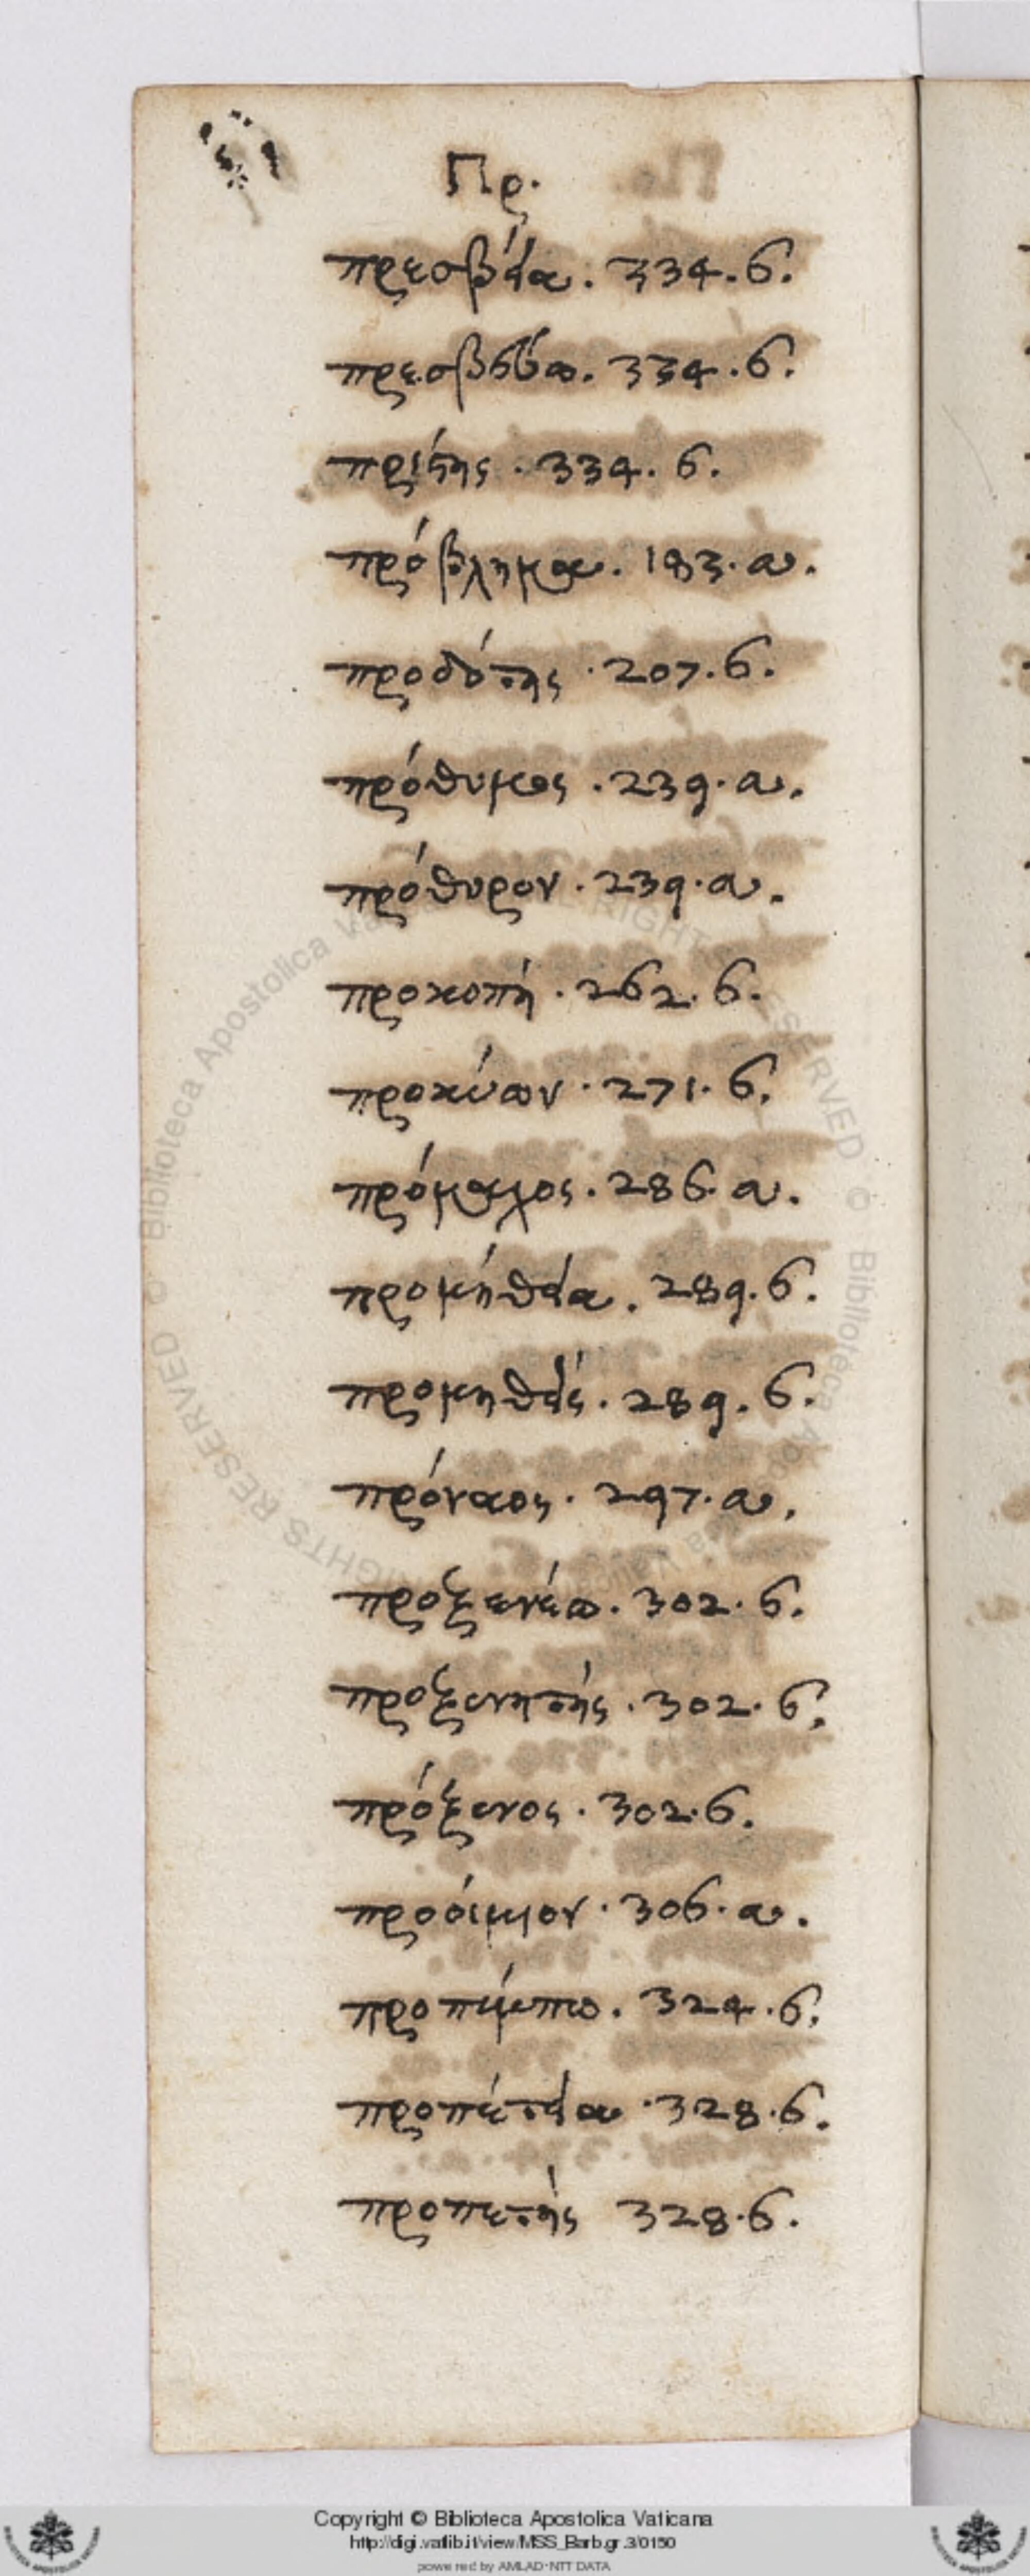 Πρ.
πρεσβεία. 334. б.
πρεσβεύω. 334. б.
πρίστης. 334. б.
πρόβλημα. 183. α.
προδότης. 207. б.
πρόθυμος. 239. α.
πρόθυρον. 239. α.
προκοπή. 262. б.
προκύων. 271. б.
πρόμαλος. 286. α.
προμήθεια. 289. б.
προμηθεύς. 289. б.
πρόναος. 297. α.
προξενέω. 302. б.
προξενητής. 302. б.
πρόξενος. 302. б.
προοίμιον. 306. α.
προπέμπω. 324. б.
προπέτεια. 328. б.
προπετής 328. б.
Copyright © Biblioteca Apostolica Vaticana
http://digi.vatlib.it/view/MSS_Barb.gr.3/0150
powered by AMLAD-NTT DATA